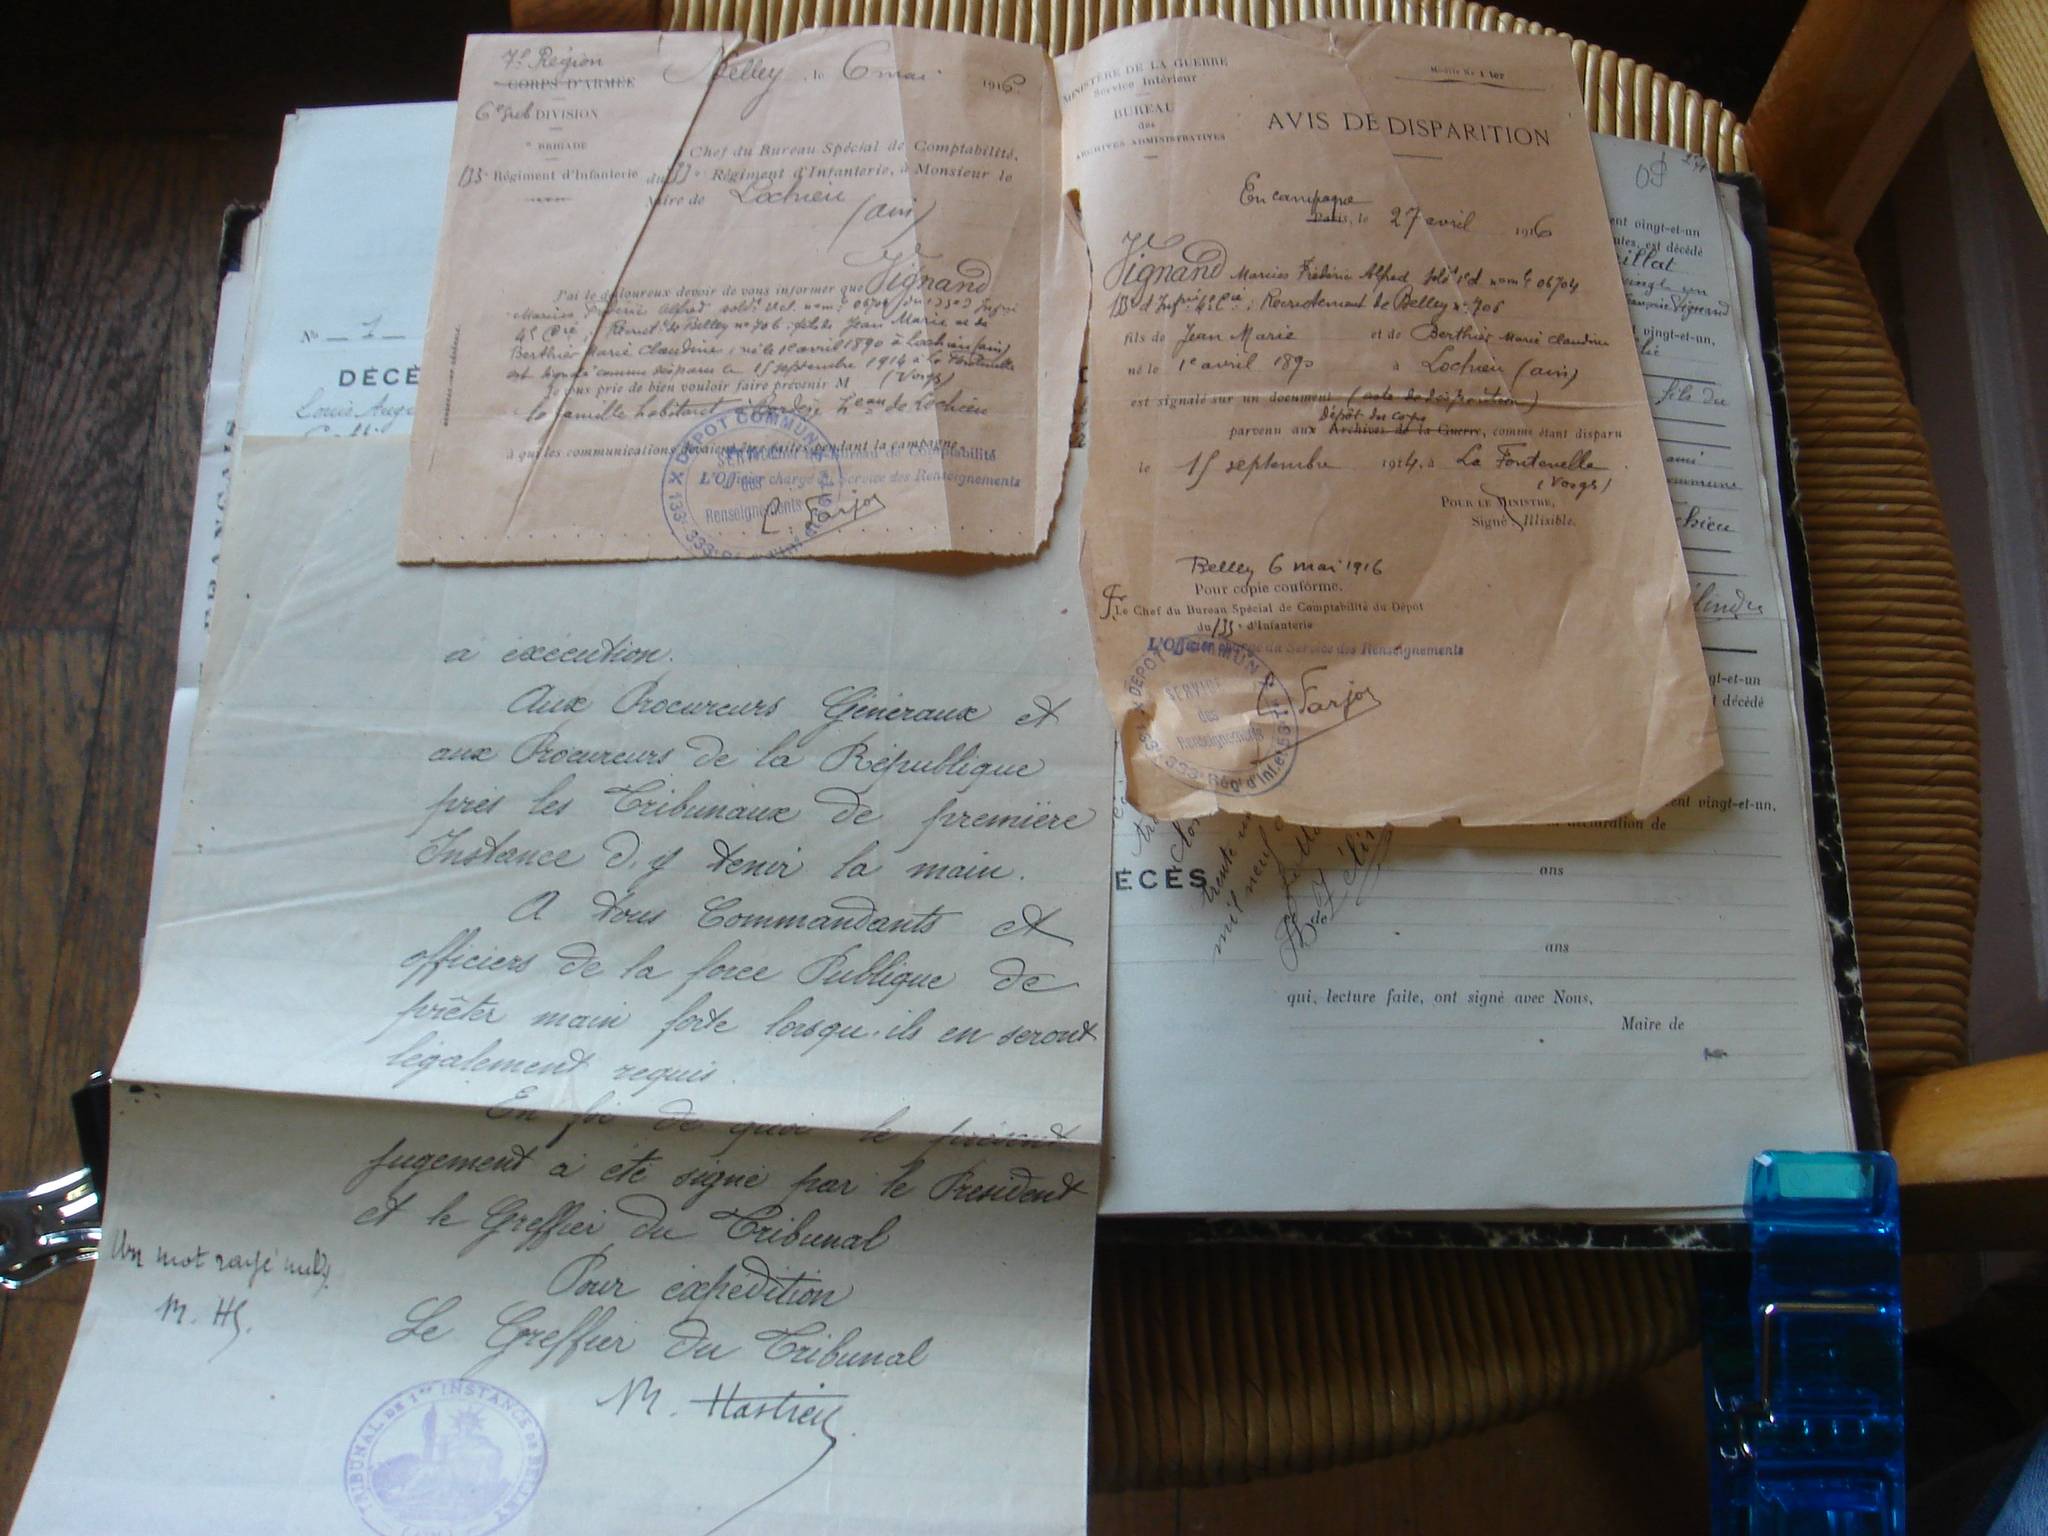 7e Région
CORPS D'ARMÉE
Belley, le 6 mai 1916
DIVISION
BRIGADE
133e Régiment d'Infanterie
Chef du Bureau Spécial de Comptabilité,
du 133e Régiment d'Infanterie, à Monsieur le
Maire de Lochieu
(ain)
J'ai le douloureux devoir de vous informer que Vignand
Marius Frédéric Alfred
Recrut. de Belley no 706 fils de Jean Marie et de
Berthier Marie Claudine, né le 1e avril 1890 à Lochieu (ain)
est signalé comme disparu le 15 septembre 1914 à la Fontenelle
Je vous prie de bien vouloir faire prévenir M (Vosges)
la famille habitant de Lochieu
à qui les communications devaient être faites pendant la campagne
L'Officier chargé du Service des Renseignements
DÉPOT COMMUN
SERVICE
des
Renseignements
133e 333e
Farjos
MINISTÈRE DE LA GUERRE
Service Intérieur
BUREAU
des
ARCHIVES ADMINISTRATIVES
AVIS DE DISPARITION
En campagne
Paris, le 27 avril 1916
Vignand Marius Frédéric Alfred
133e Recrutement de Belley no 706
fils de Jean Marie et de Berthier Marie Claudine
né le 1e avril 1890 à Lochieu (ain)
est signalé sur un document (acte de disparition)
Dépôt du corps
parvenu aux Archives de la Guerre, comme étant disparu
le 15 septembre 1914, à La Fontenelle
(Vosges)
POUR LE MINISTRE,
Signé Illisible.
Belley 6 mai 1916
Pour copie conforme.
Le Chef du Bureau Spécial de Comptabilité du Dépôt
du 133e d'Infanterie
L'Officier chargé du Service des Renseignements
DÉPOT COMMUN
SERVICE
des
Renseignements
133e 333e Rég. d'Inf.
Farjos
No 1
DÉCÈ
a exécution.
Aux Procureurs Généraux et
aux Procureurs de la République
près les Tribunaux de première
Instance d'y tenir la main.
A tous Commandants et
officiers de la force Publique de
prêter main forte lorsqu'ils en seront
légalement requis.
En foi de quoi le présent
jugement a été signé par le Président
et le Greffier du Tribunal
Pour expédition
Le Greffier du Tribunal
Un mot rayé nul
M. H
TRIBUNAL DE 1ère INSTANCE DE BELLEY
(AIN)
ent vingt-et-un
est décédé
vingt-et-un,
fils de
gt-et-un
décédé
cent vingt-et-un,
déclaration de
ÉCÈS
ans
de
ans
qui, lecture faite, ont signé avec Nous,
Maire de